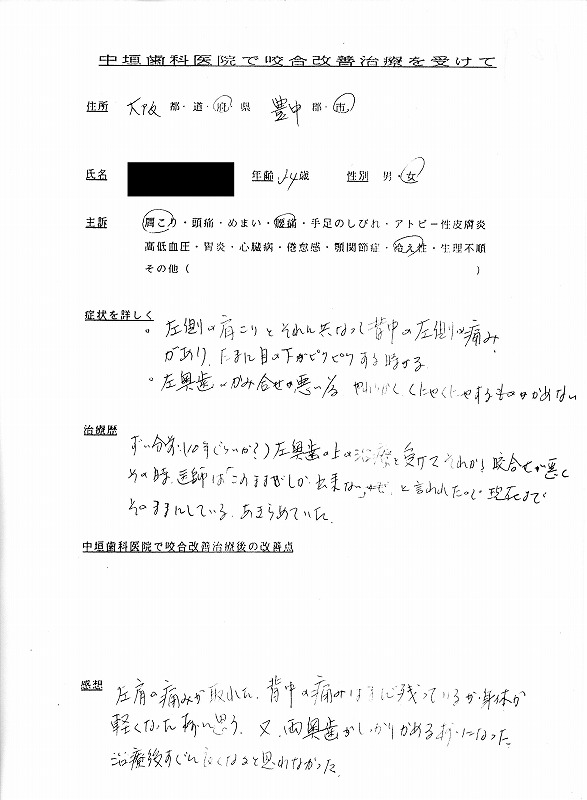 中垣歯科医院で咬合改善治療を受けて
住所 大阪 都・道・府・県 豊中 郡・市
氏名 年齢 54歳 性別 男・女
主訴 肩こり・頭痛・めまい・腰痛・手足のしびれ・アトピー性皮膚炎
高低血圧・胃炎・心臓病・倦怠感・顎関節症・冷え性・生理不順
その他( )
症状を詳しく
。左側の肩こりとそれに共なって背中の左側の痛み
があり、たまに目の下がピクピクする時がある
。左奥歯のかみ合せが悪い為 やわらかく、くにゃくにゃするものがかめない
治療歴
ずい分前(10年ぐらいか?)左奥歯の上の治療を受けてそれから咬合せが悪く
その時、医師は「このままでしか出来ない」と言われたので現在まで
そのままにしている。あきらめていた。
中垣歯科医院で咬合改善治療後の改善点
感想
左肩の痛みが取れた、背中の痛みはまだ残っているが、身体が
軽くなった様に思う。又、両奥歯がしっかりかめる様になった。
治療後すぐに良くなると思わなかった。